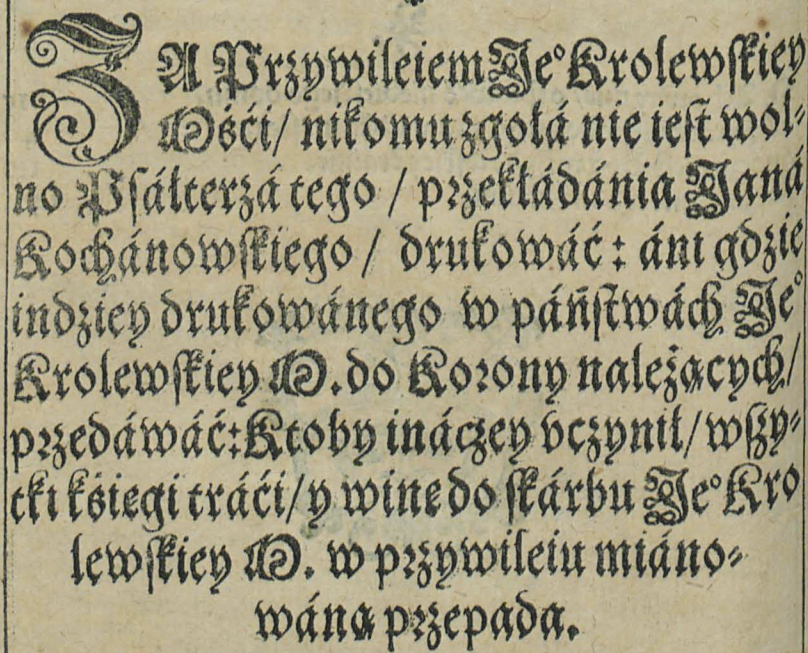 ZA Przywileiem Je° Krolewſkiey
Mśći/ nikomu zgołá nie ieſt wol⸗
no Pſáłterzá tego / przekłádánia Janá
Kochánowſkiego / drukowáć: áni gdzie
indziey drukowánego w páńſtwách Je°
Krolewſkiey M. do Korony należących/
przedáwáć: Ktoby ináczey vczynił/ wſzy⸗
tki kśięgi tráći/ y winę do ſkárbu Je° Kro
lewſkiey M. w przywileiu miáno⸗
wáną przepada.